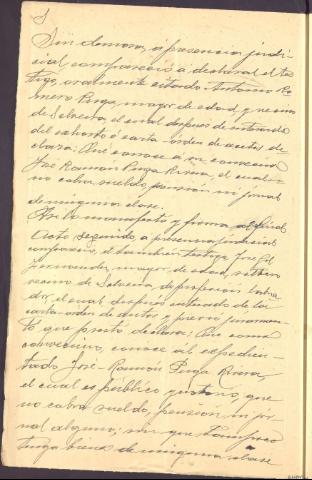 Sin demora, a presencia judi-
cial compareció a declarar el tes-
tigo, oralmente citado Antonio Ro-
mero Puga, mayor de edad y vecino
de el cual después de enterado
del exhorto ó carta-orden de
clara: Que conoce á su convecino
José Ramón Puga Rivera, el cual
no cobra sueldo, pensión ni jornal
de ninguna clase.
Así lo manifestó y firma
Acto seguido, a presencia judicial
compareció, el también testigo José Gil
Fernandez, mayor de edad,
vecino de de profesion labra-
dor, el cual después enterado de la
carta-orden de autos y previo juramen-
to que prestó declara: Que como
convecino, conoce al expedien-
tado José-Ramón Puga Rivera,
el cual es público y notorio, que
no cobra sueldo, pensión ni jor-
nal alguno; sin que tampoco
tenga bienes de ninguna clase